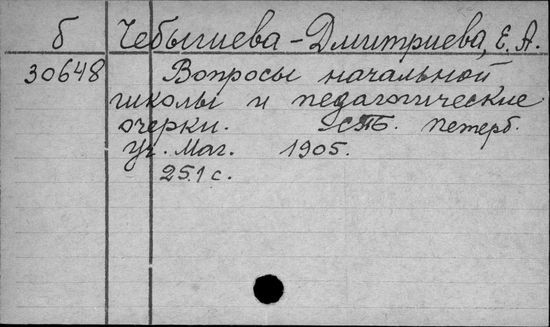 б Чебышева-Дмитриева, Е. А.
30648 Вопросы начальной
школы и педагогические
очерки. СПБ. Петерб.
Уч. Маг. 1905.
251 с.